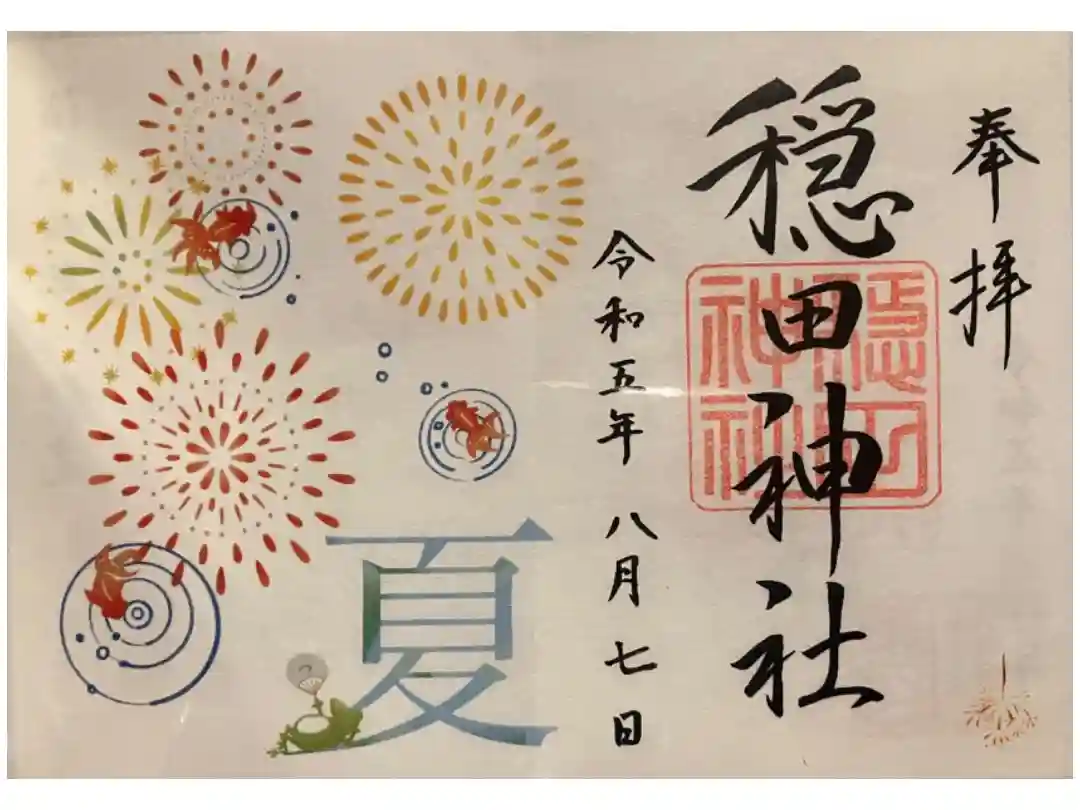 奉拝
穏田神社
穏田
神社
令和五年 八月七日
夏